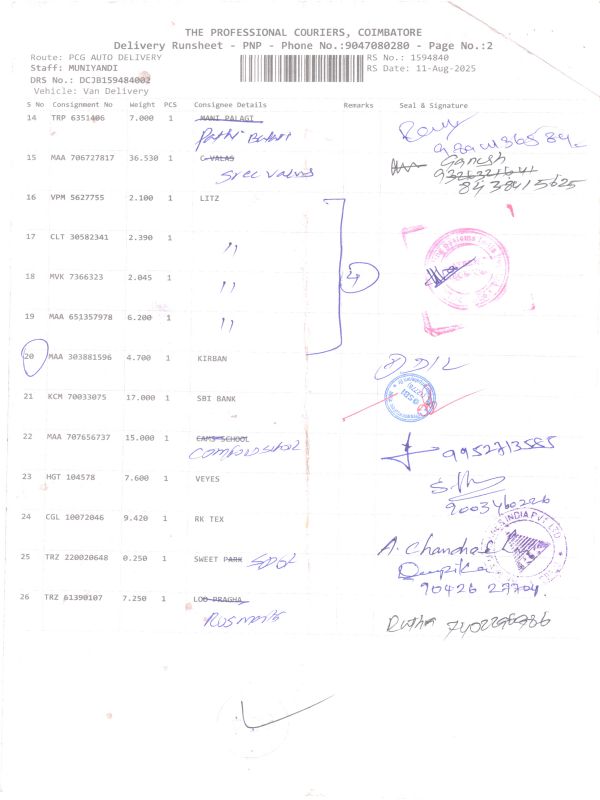 THE PROFESSIONAL COURIERS, COIMBATORE
Delivery Runsheet - PNP - Phone No.:9047080280 - Page No.:2
Route: PCG AUTO DELIVERY
RS No.: 1594840
Staff: MUNIYANDI
RS Date: 11-Aug-2025
DRS No.: DCJB159484002
Vehicle: Van Delivery
S No Consignment No Weight PCS Consignee Details Remarks Seal & Signature
14 TRP 6351406 7.000 1 MANI PALAGI
15 MAA 706727817 36.530 1 C VALAS Ganesh
Sree Valavs 9326321641
8438415625
16 VPM 5627755 2.100 1 LITZ
17 CLT 30582341 2.390 1
"
18 MVK 7366323 2.045 1 4
"
19 MAA 651357978 6.200 1 "
20 MAA 303881596 4.700 1 KIRBAN D/L
21 KCM 70033075 17.000 1 SBI BANK
22 MAA 707656737 15.000 1 CAMS SCHOOL
9952713585
23 HGT 104578 7.600 1 VEYES
9003460226
24 CGL 10072046 9.420 1 RK TEX
25 TRZ 220020648 0.250 1 SWEET PARK A. Chandra
Deepika
90426 27704
26 TRZ 61390107 7.250 1 LOO PRAGHA